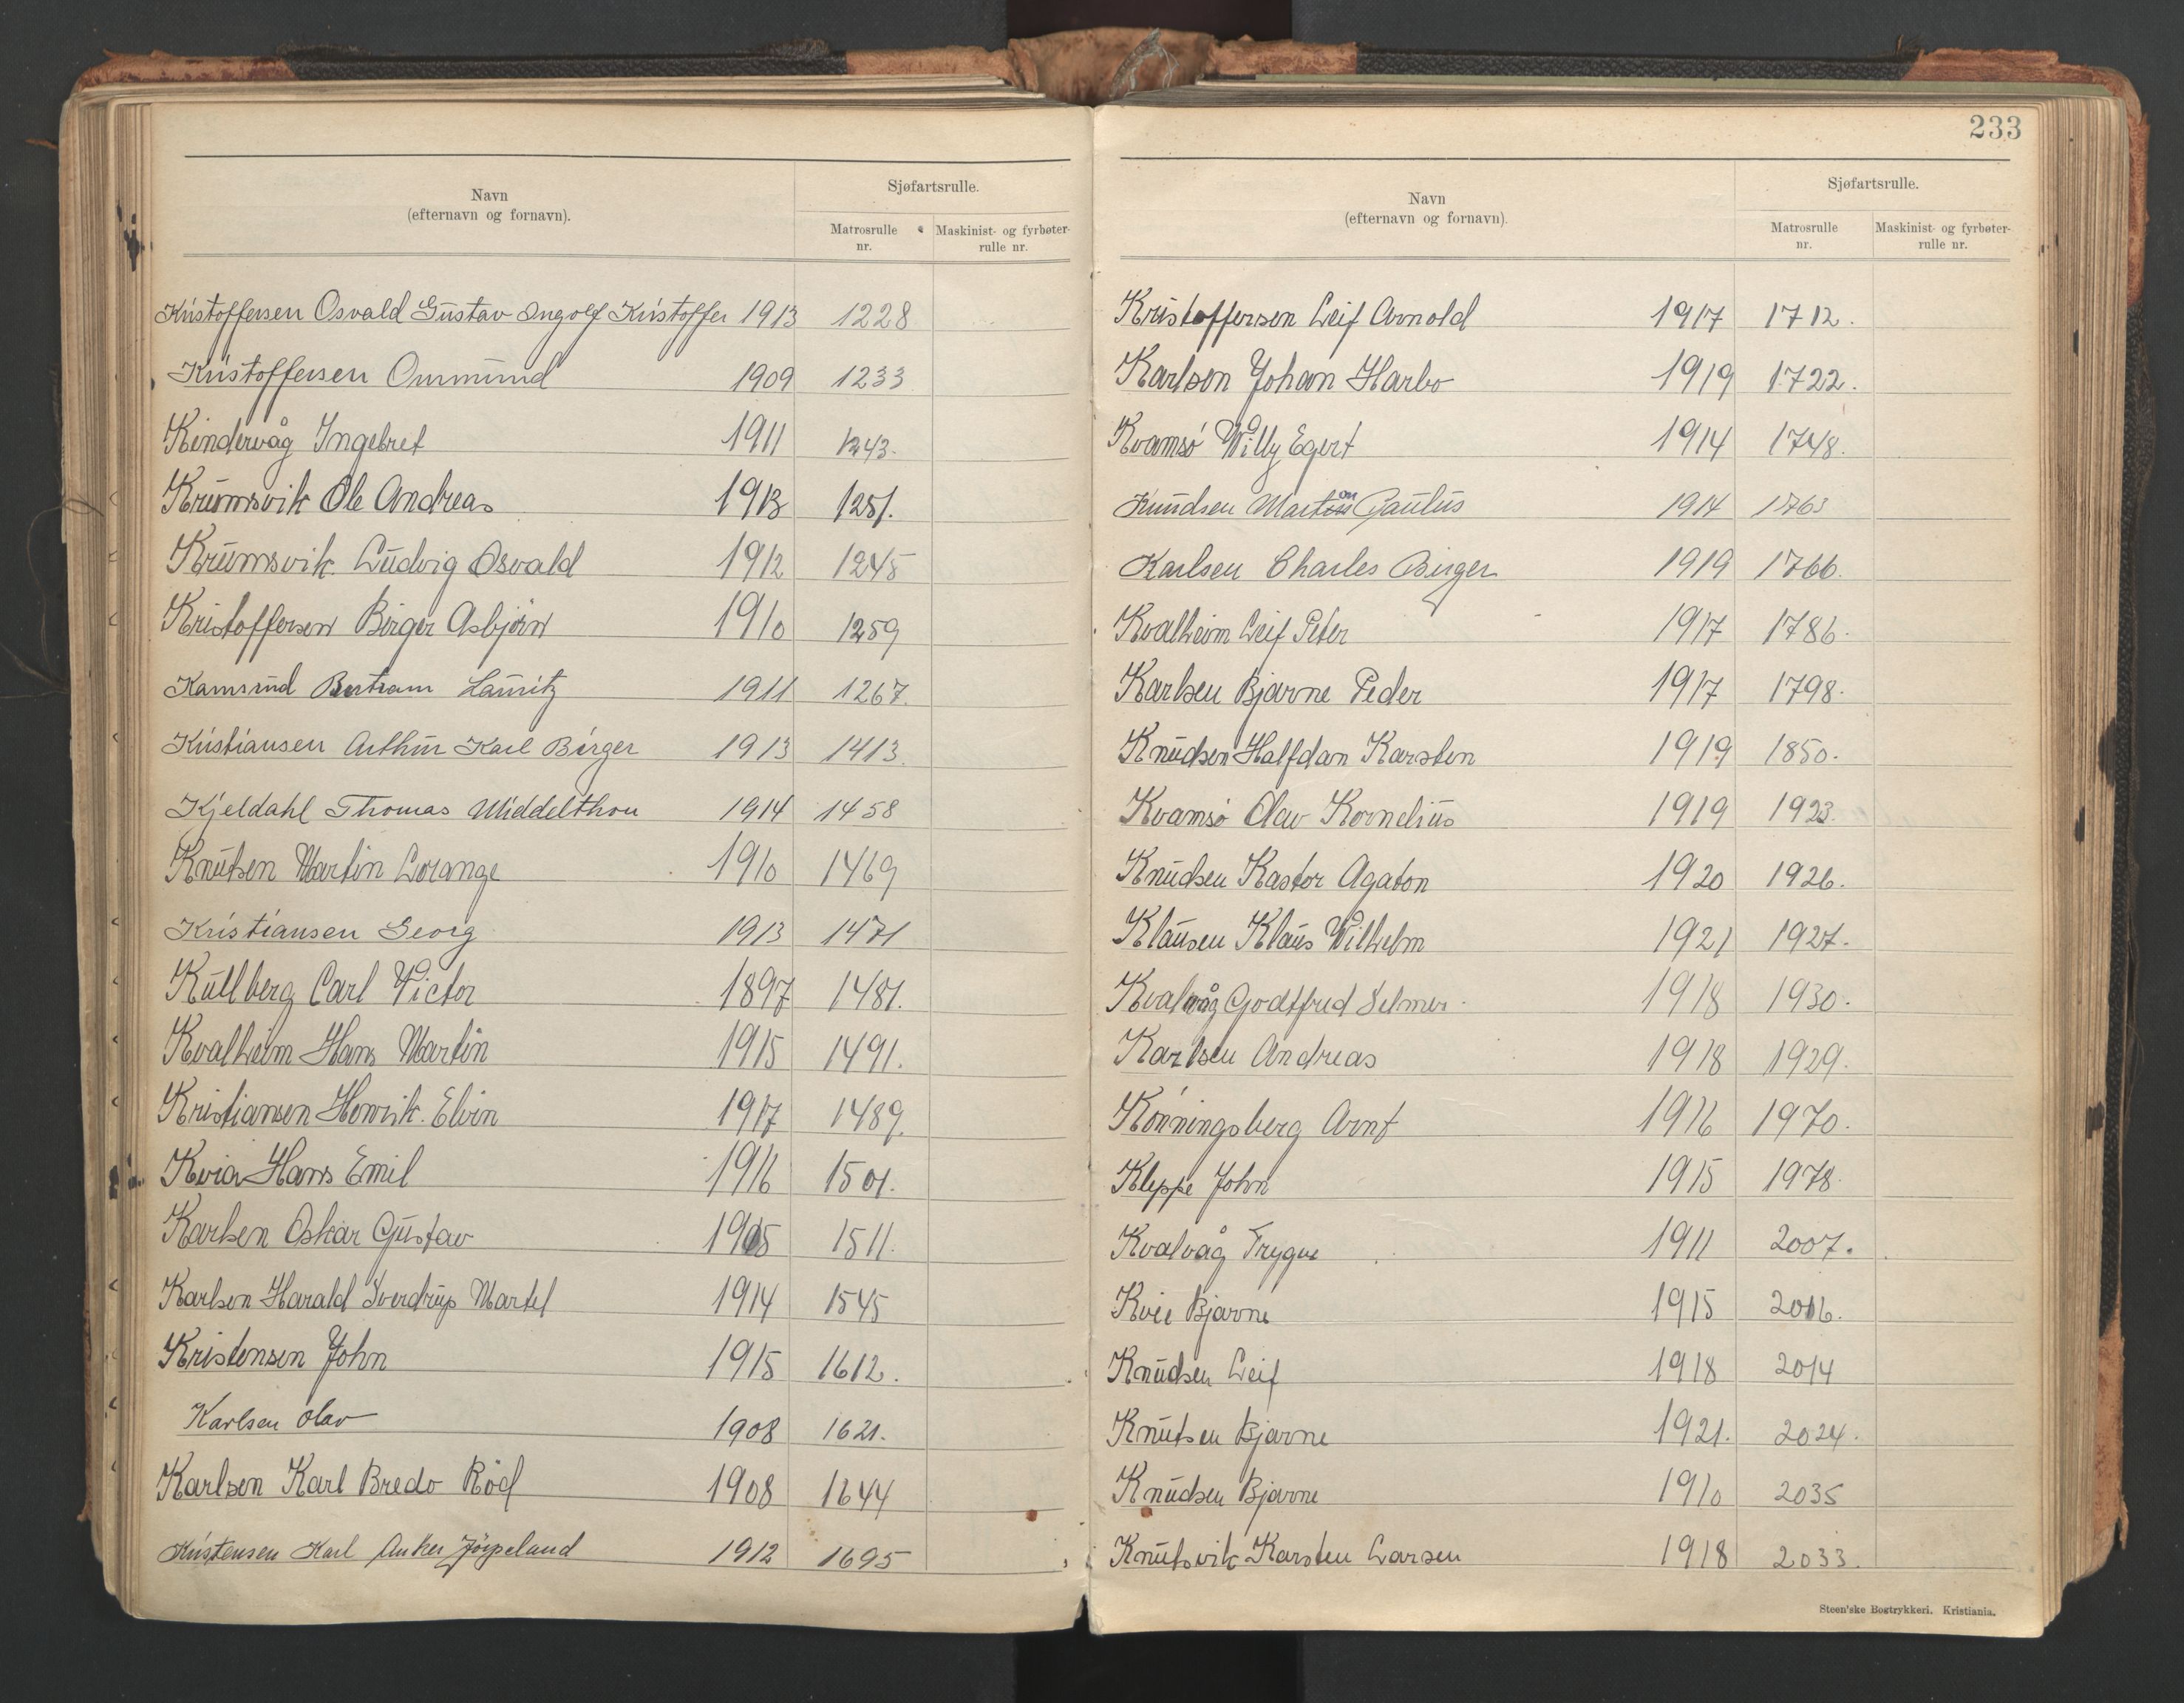 Navn
(efternavn og fornavn).
Sjøfartsrulle.
Matrosrulle
nr.
Maskinist- og fyrbøter-
rulle nr.
Kristoffersen Osvald Gustav Ingolf Kristoffer 1913 1228
Kristoffersen Ommund 1909 1233
Kindervåg Ingebret 1911 1243.
Krumsvik Ole Andreas 1913 1251.
Krumsvik Ludvig Osvald 1912 1245
Kristoffersen Birger Asbjörn 1910 1259
Kamsrud Bertram Lauritz 1911 1267.
Kristiansen Arthur Karl Birger 1913 1413.
Kjeldahl Thomas Middelthon 1914 1458
Knutsen Martin Lorange 1910 1469
Kristiansen Georg 1913 1471
Kullberg Carl Victor 1897 1481.
Kvalheim Hans Martin 1915 1491.
Kristiansen Henrik Elvin 1917 1489.
Kvia Hans Emil 1916 1501.
Karlsen Oskar Gustav 1511.
Karlsen Harald Sverdrup Martel 1914 1545
Kristensen John 1915 1612.
Karlsen Olav 1908 1621.
Karlsen Karl Bredo Röd 1908 1644
Kristensen Karl Anker Jörpeland 1912 1695
233
Navn
(efternavn og fornavn).
Sjøfartsrulle.
Matrosrulle
nr.
Maskinist- og fyrbøter-
rulle nr.
Kristoffersen Leif Arnold 1917 1712.
Karlsen Johan Harbo 1919 1722.
Kvamsö Willy Egert 1914 1748.
Knudsen Marton Paulus 1914 1763
Karlsen Charles Birger 1919 1766.
Kvalheim Leif Peter 1917 1786.
Karlsen Bjarne Peder 1917 1798.
Knudsen Halfdan Karsten 1919 1850.
Kvamsö Olav Kornelius 1919 1923.
Knudsen Kastor Agaton 1920 1926.
Klausen Klaus Wilhelm 1921 1927.
Kvalvåg Godtfred Selmer 1918 1930.
Karlsen Andreas 1918 1929.
Könningsberg Arnt 1916 1970.
Kleppe John 1915 1978.
Kvalvåg Trygve 1911 2007.
Kvie Bjarne 1915 2016.
Knudsen Leif 1918 2014
Knutsen Bjarne 1921. 2024.
Knudsen Bjarne 1910 2035
Knutsvik Karsten Larsen 1918 2033.
Steen'ske Bogtrykkeri. Kristiania.